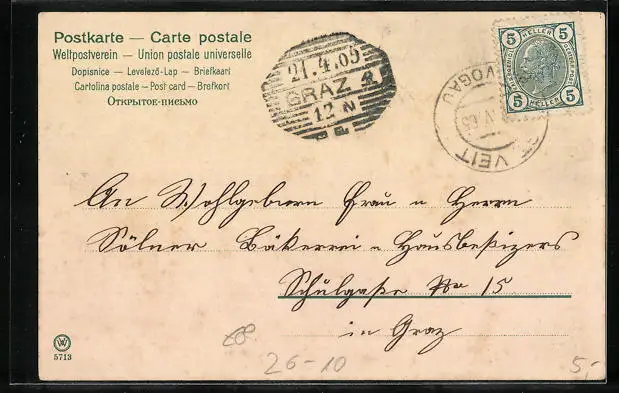 Postkarte — Carte postale
Weltpostverein — Union postale universelle
Dopisnice — Levelező-Lap — Briefkaart
Cartolina postale — Post card — Brefkort
Открытое-письмо
21.4.05
GRAZ 4
12 N
VOGAU
ST VEIT
5 HELLER 5
5 HELLER 5
An Wohlgeborn Frau u Herrn
Sölner Bäkerrei u Hausbesizers
Schulgaße No 15
in Graz
5713
26-10
5,-